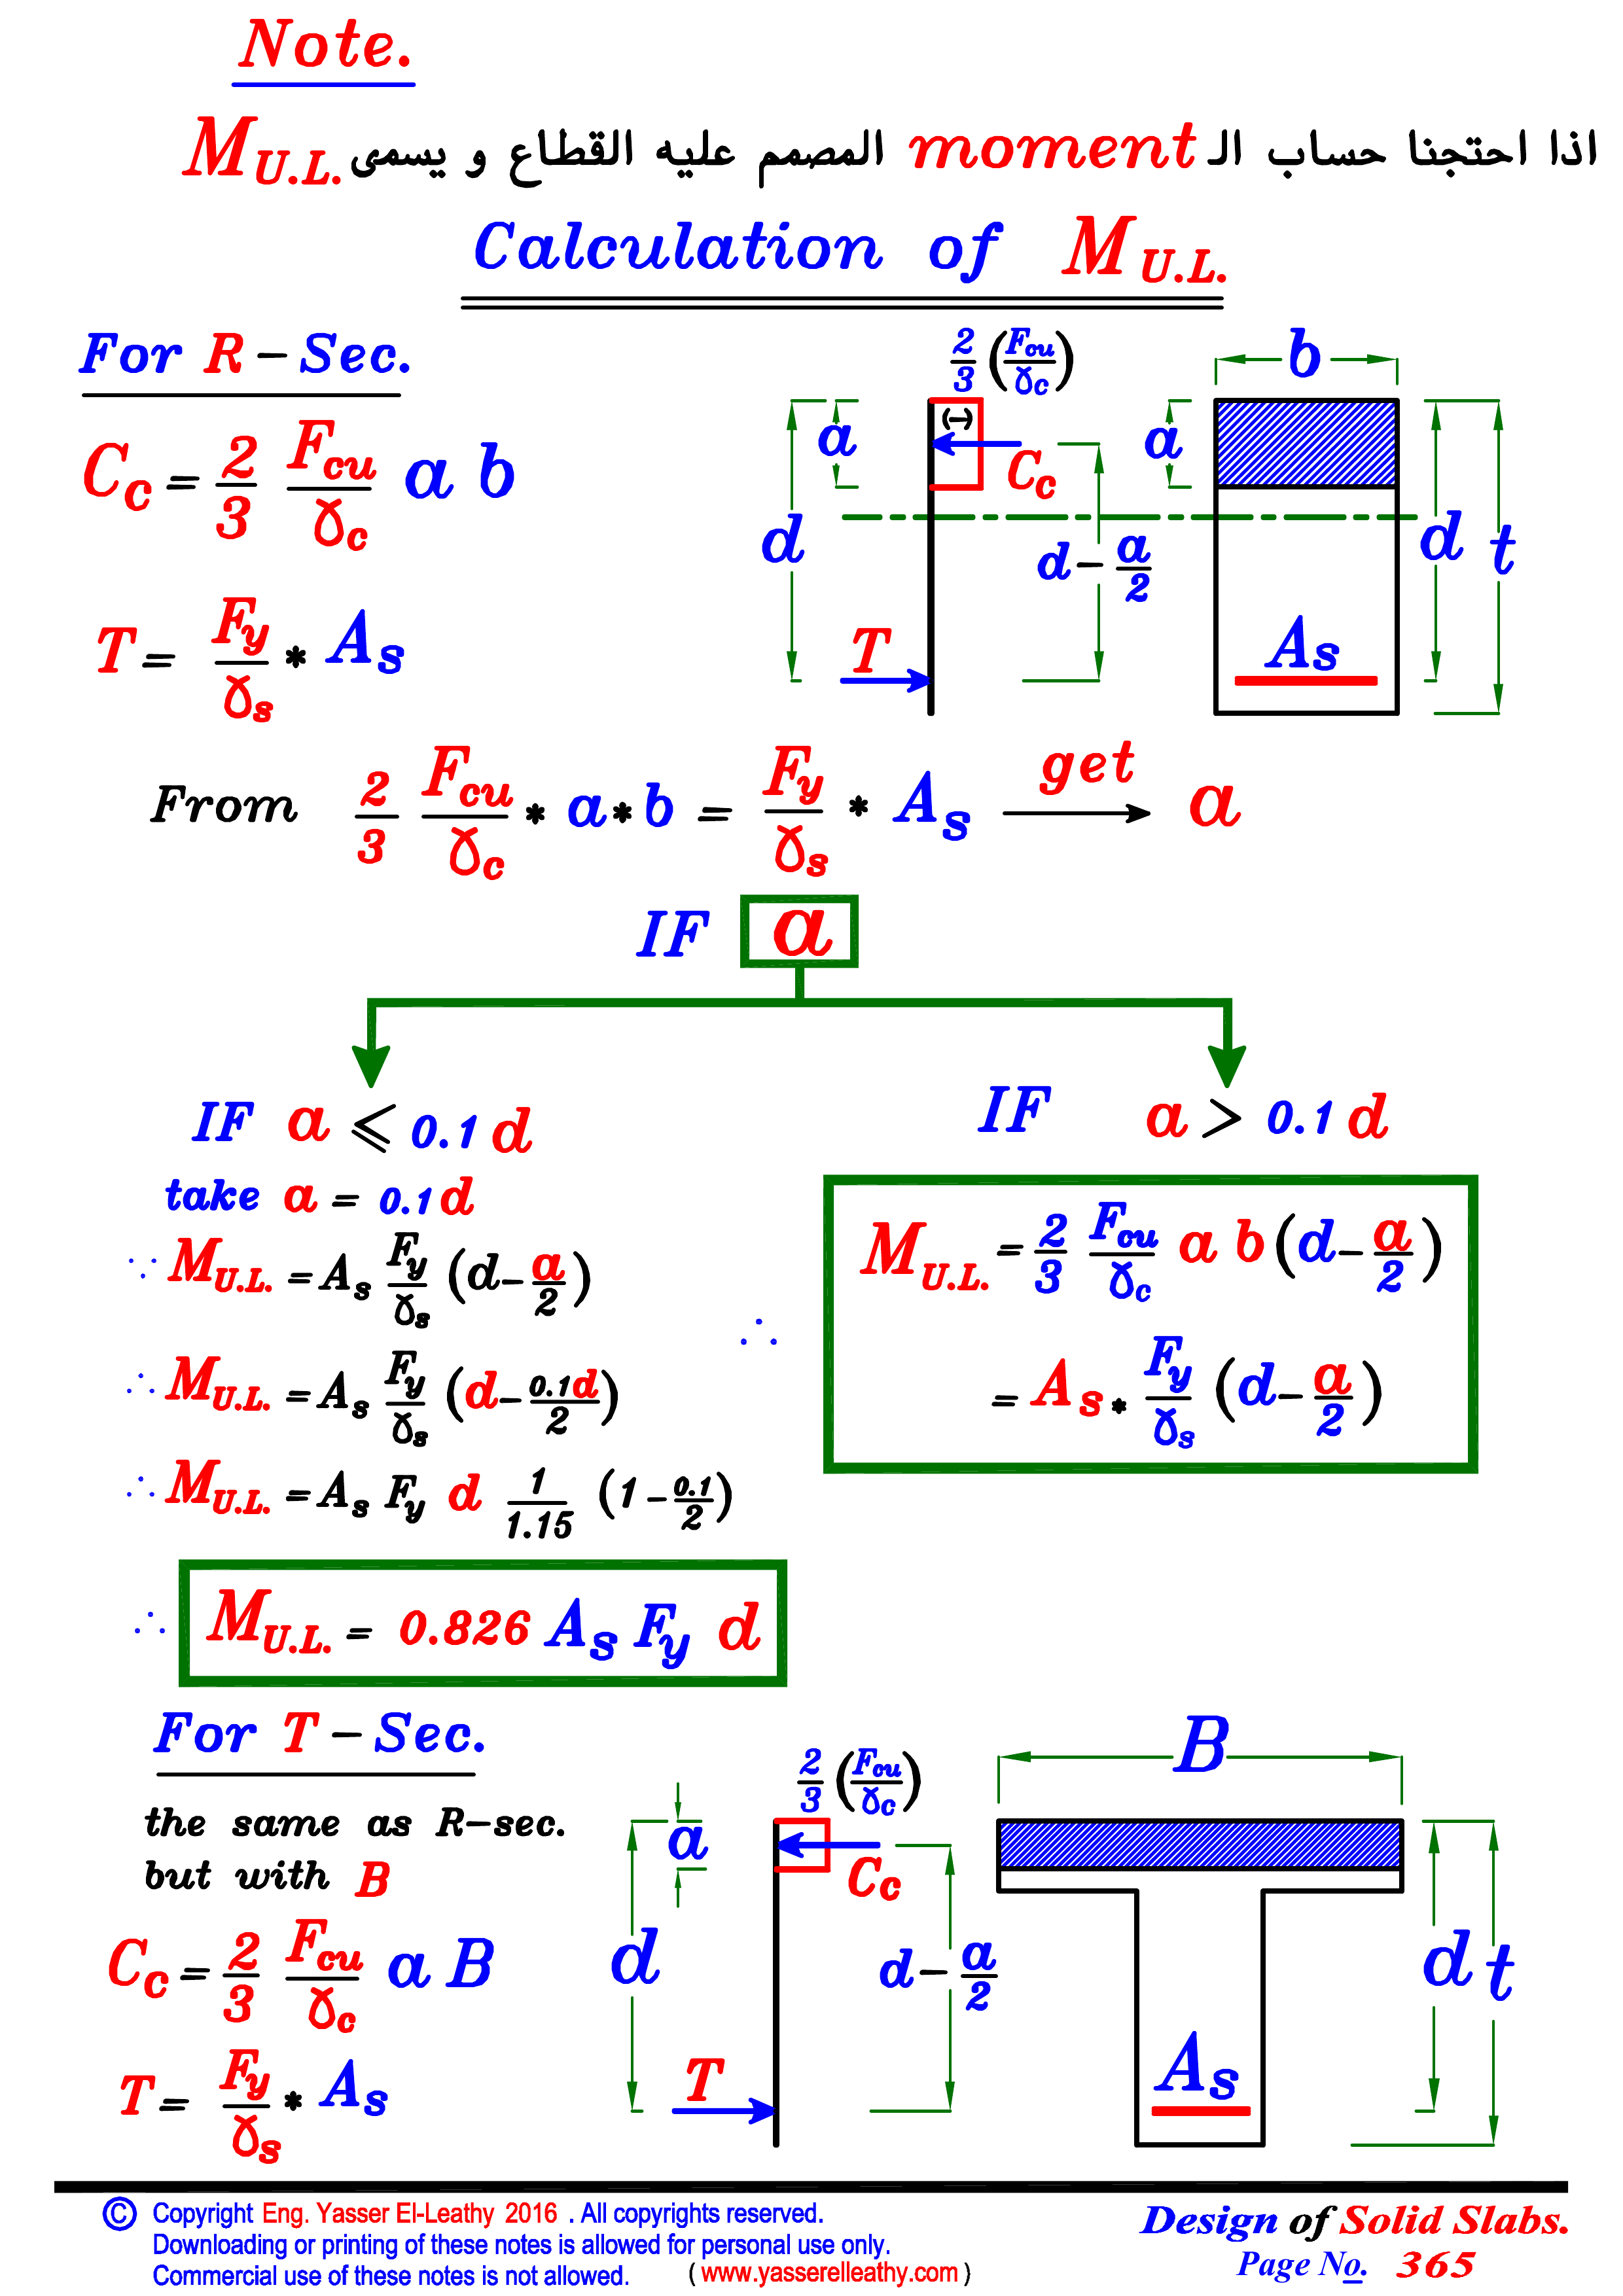 Note.
اذا احتجنا حساب الـ moment المصمم عليه القطاع و يسمى M U.L.
Calculation of M U.L.
For R-Sec.
C_c = 2/3 F_cu/γ_c a b
T = F_y/γ_s * A_s
2/3 (F_cu/γ_c)
b
a
(-)
C_c
a
d
d - a/2
d
t
T
A_s
From 2/3 F_cu/γ_c * a * b = F_y/γ_s * A_s get a
IF a
IF a ⩽ 0.1 d
take a = 0.1 d
∵ M U.L. = A_s F_y/γ_s (d - a/2)
∴ M U.L. = A_s F_y/γ_s (d - 0.1d/2)
∴ M U.L. = A_s F_y d 1/1.15 (1 - 0.1/2)
∴ M U.L. = 0.826 A_s F_y d
IF a > 0.1 d
∴ M U.L. = 2/3 F_cu/γ_c a b (d - a/2)
= A_s * F_y/γ_s (d - a/2)
For T-Sec.
the same as R-sec.
but with B
C_c = 2/3 F_cu/γ_c a B
T = F_y/γ_s * A_s
2/3 (F_cu/γ_c)
B
a
C_c
d
d - a/2
d
t
T
A_s
© Copyright Eng. Yasser El-Leathy 2016 . All copyrights reserved.
Downloading or printing of these notes is allowed for personal use only.
Commercial use of these notes is not allowed. ( www.yasserelleathy.com )
Design of Solid Slabs.
Page No. 365